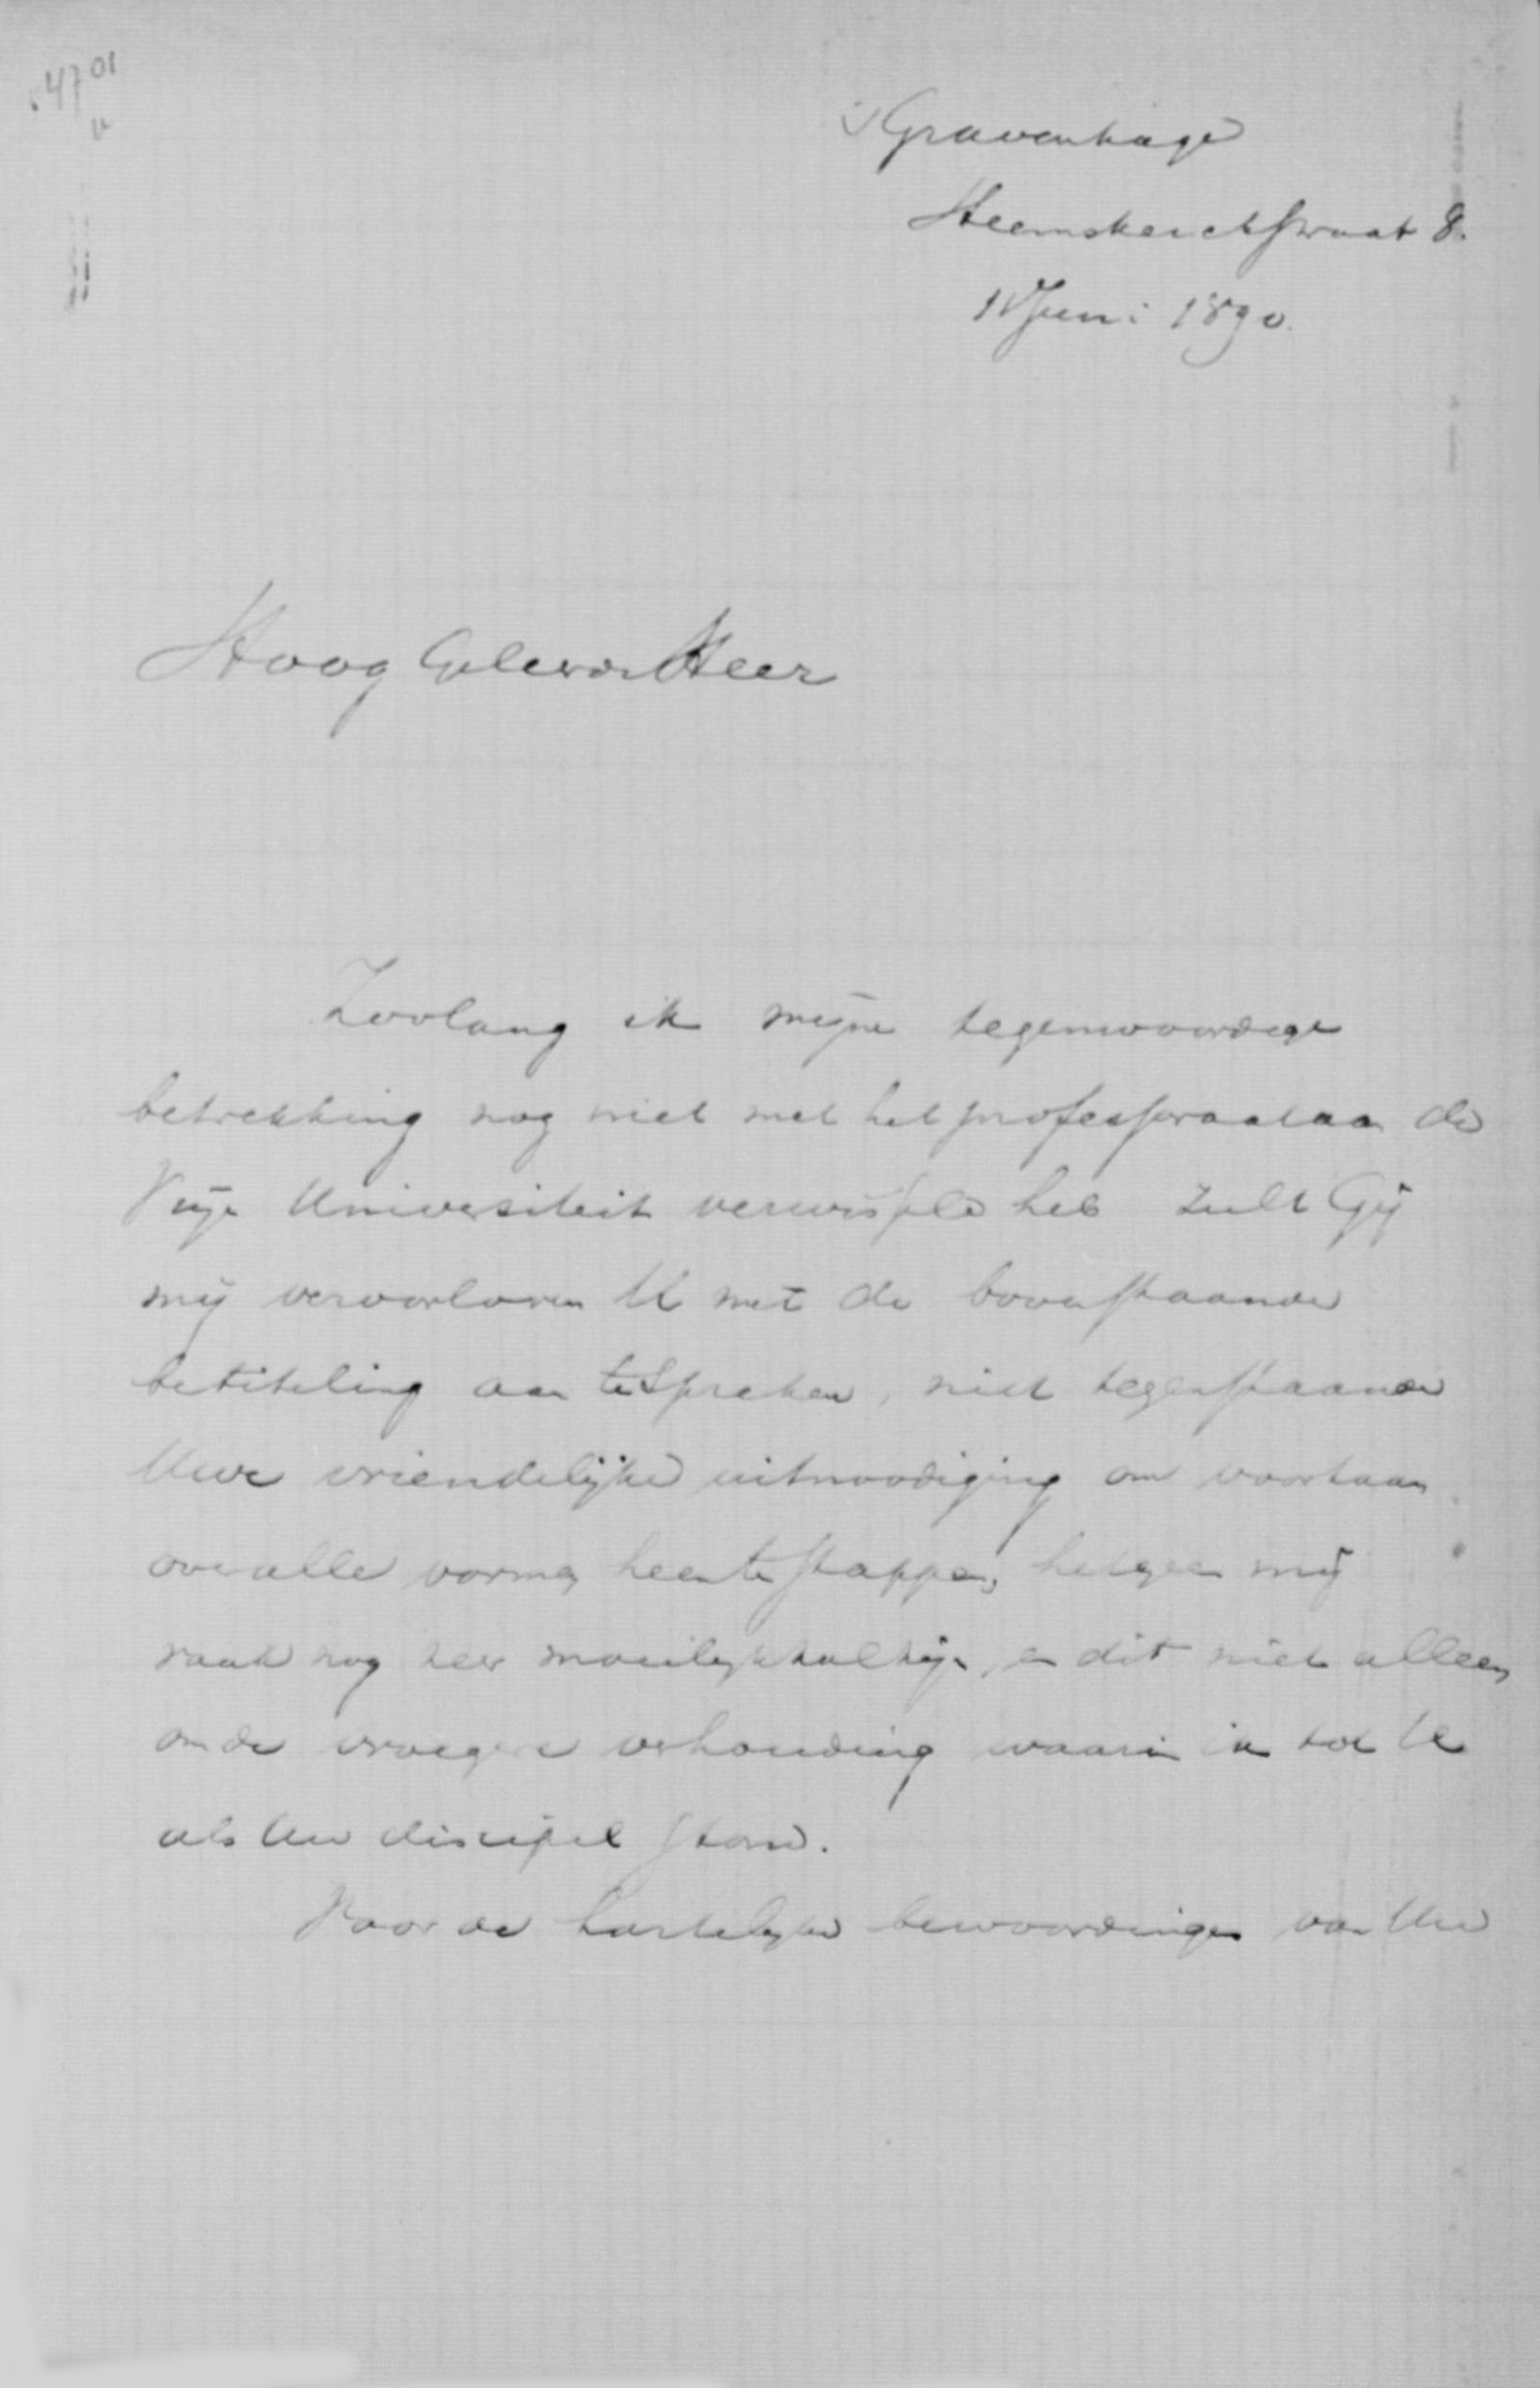 4701
's Gravenhage
Heemskerckstraat 8.
11 Juni 1890.
Hoog Geleerde Heer
Zoolang ik mijne tegenwoordige
betrekking nog niet met het professoraat aan de
Vrije Universiteit verwisseld heb zult Gij
mij veroorloven U met de bovenstaande
betiteling aan te spreken, niet tegenstaande
Uwe vriendelijke uitnoodiging om voortaan
over alle vormen heen te stappen, hetgeen mij
vaak nog zeer moeilijk zal zijn, en dit niet alleen
om de vroegere verhouding waarin ik tot U
als Uw discipel stond.
Voor de hartelijke bewoordingen van Uw